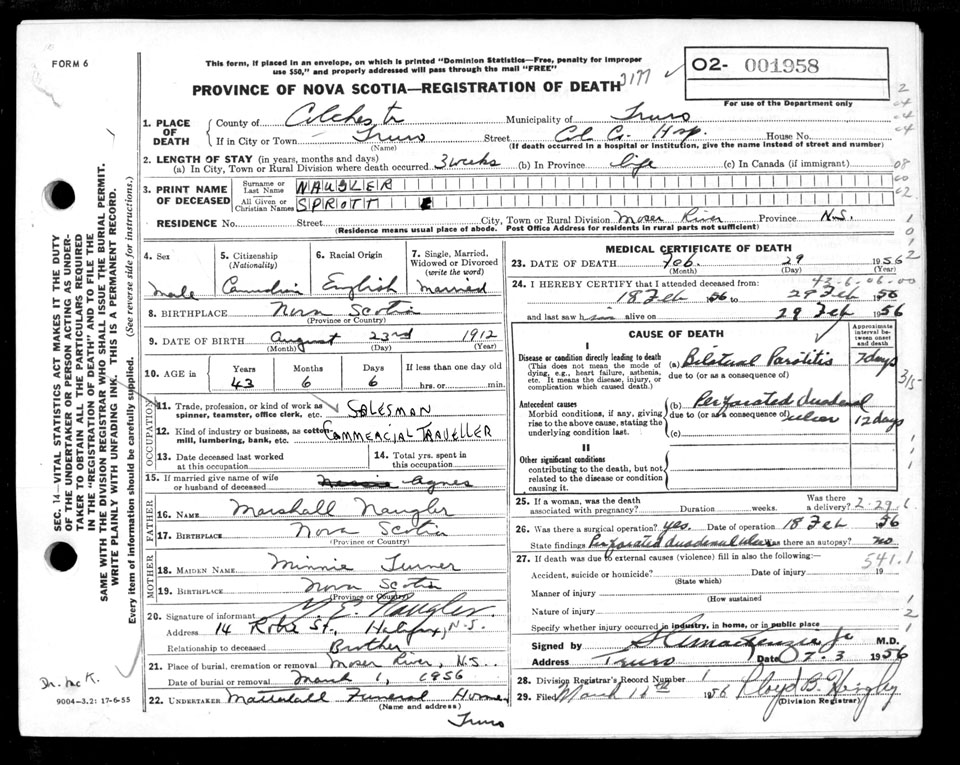 FORM 6
This form, if placed in an envelope, on which is printed "Dominion Statistics—Free, penalty for improper
use $50," and properly addressed will pass through the mail "FREE"
3177
O2- 001958
For use of the Department only
PROVINCE OF NOVA SCOTIA—REGISTRATION OF DEATH
1. PLACE OF DEATH
County of Colchester Municipality of Truro
If in City or Town Truro Street Col Co. Hsp. House No.
(Name) (If death occurred in a hospital or institution, give the name instead of street and number)
2. LENGTH OF STAY (in years, months and days)
(a) In City, Town or Rural Division where death occurred 3 weeks (b) In Province life (c) In Canada (if immigrant)
3. PRINT NAME OF DECEASED
Surname or Last Name NAUGLER
All Given or Christian Names SPROTT E
RESIDENCE No. Street City, Town or Rural Division Moser River Province N.S.
(Residence means usual place of abode. Post Office Address for residents in rural parts not sufficient)
4. Sex
Male
5. Citizenship
(Nationality)
Canadian
6. Racial Origin
English
7. Single, Married,
Widowed or Divorced
(write the word)
Married
8. BIRTHPLACE Nova Scotia
(Province or Country)
9. DATE OF BIRTH August 23rd 1912
(Month) (Day) (Year)
10. AGE in
Years Months Days If less than one day old
43 6 6 hrs. or min.
OCCUPATION
11. Trade, profession, or kind of work as
spinner, teamster, office clerk, etc. SALESMAN
12. Kind of industry or business, as cotton-
mill, lumbering, bank, etc. COMMERCIAL TRAVELLER
13. Date deceased last worked
at this occupation
14. Total yrs. spent in
this occupation
15. If married give name of wife
or husband of deceased Agnes
FATHER
16. Name Marshall Naugler
17. Birthplace Nova Scotia
(Province or Country)
MOTHER
18. Maiden Name Minnie Turner
19. Birthplace Nova Scotia
(Province or Country)
20. Signature of informant M. E. Naugler
Address 14 Robie St., Halifax, N.S.
Relationship to deceased Brother
21. Place of burial, cremation or removal Moser River, N.S.
Date of burial or removal March 1, 1956
22. UNDERTAKER Mattatall Funeral Home
(Name and address)
Truro
MEDICAL CERTIFICATE OF DEATH
23. DATE OF DEATH Feb. 29 1956
(Month) (Day) (Year)
24. I HEREBY CERTIFY that I attended deceased from:
43-6-06-00
18 Feb 56 to 29 Feb 56
and last saw him alive on 29 Feb 1956
CAUSE OF DEATH
Approximate
interval be-
tween onset
and death
I
Disease or condition directly leading to death
(This does not mean the mode of
dying, e.g., heart failure, asthenia,
etc. It means the disease, injury, or
complication which caused death.)
(a) Bilateral Parotitis 7 days
due to (or as a consequence of)
Antecedent causes
Morbid conditions, if any, giving
rise to the above cause, stating the
underlying condition last.
(b) Perforated duodenal
due to (or as consequence of) ulcer 12 days
(c)
II
Other significant conditions
contributing to the death, but not
related to the disease or condition
causing it.
25. If a woman, was the death
associated with pregnancy? Duration weeks. Was there
a delivery? 2-29
26. Was there a surgical operation? yes. Date of operation 18 Feb 1956
State findings Perforated duodenal ulcer Was there an autopsy? no
27. If death was due to external causes (violence) fill in also the following:—
541.1
Accident, suicide or homicide? Date of injury 19
(State which)
Manner of injury
(How sustained)
Nature of injury
Specify whether injury occurred in industry, in home, or in public place
Signed by MacKenzie Jr M.D.
Address Truro Date 07-3 1956
28. Division Registrar's Record Number
29. Filed March 1956 Lloyd B
(Division Registrar)
SEC. 14—VITAL STATISTICS ACT MAKES IT THE DUTY
OF THE UNDERTAKER OR PERSON ACTING AS UNDER-
TAKER TO OBTAIN ALL THE PARTICULARS REQUIRED
IN THE "REGISTRATION OF DEATH" AND TO FILE THE
SAME WITH THE DIVISION REGISTRAR WHO SHALL ISSUE THE BURIAL PERMIT.
WRITE PLAINLY WITH UNFADING INK. THIS IS A PERMANENT RECORD.
Every item of information should be carefully supplied. (See reverse side for instructions.)
Dr. Mc K.
9004-3.2: 17-6-55